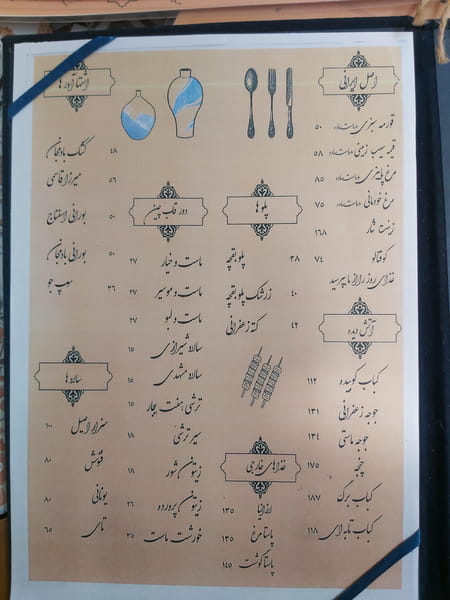 اصل ایرانی
قورمه سبزی «ماست دار» ۵۰
قیمه سیب زمینی «ماست دار» ۵۸
مرغ پاییزی «ماست دار» ۸۵
مرغ خودمانی «ماست دار» ۷۵
زینت نثار ۱۶۸
کوفتالو ۷۴
غذای روز را از ما بپرسید
آتش دیده
کباب کوبیده ۱۱۲
جوجه زعفرانی ۱۳۱
جوجه ماستی ۱۳۴
چنجه ۱۷۵
کباب برگ ۱۸۷
کباب تابه ای ۱۱۸
پلو ها
پلو بقچه ۳۸
زرشک پلو بقچه ۴۰
کته زعفرانی ۴۲
غذاهای خارجی
لازانیا ۱۳۵
پاستا مرغ ۱۳۵
پاستا گوشت ۱۴۵
دور قاب چین
ماست و خیار ۲۷
ماست و موسیر ۲۷
ماست و لبو ۲۷
سالاد شیرازی ۱۵
سالاد مشهدی ۱۵
ترشی هفت بیجار ۱۵
سیر ترشی ۱۸
زیتون شور ۱۸
زیتون پرورده ۲۶
خورشت ماست ۳۵
اشتها آور ها
کشک بادمجان ۴۸
میرزا قاسمی ۵۶
بورانی اسفناج ۵۰
بورانی بادمجان ۵۰
سوپ جو ۳۶
سالاد ها
سزار اصیل ۱۰۰
فتوش ۸۰
یونانی ۸۰
تای ۶۵